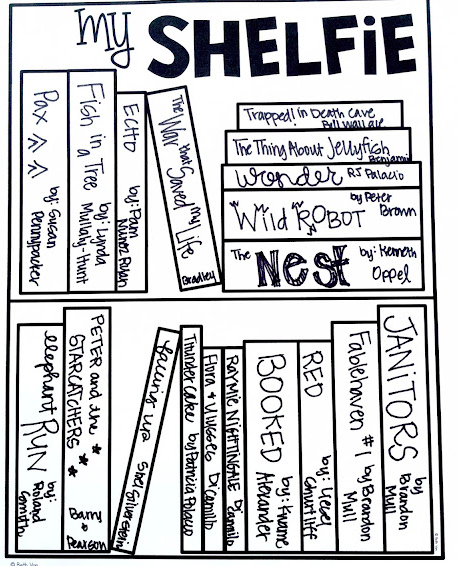 my SHELFiE
Pax
by: Susan
Pennypacker
Fish in a Tree
by: Lynda
Mullaly-Hunt
ECHO
by: Pam
Munoz Ryan
The War that Saved my Life
Bradley
Trapped! in Death Cave
Bill Wallace
The Thing About Jellyfish
Benjamin
Wonder RJ Palacio
Wild ROBOT
by Peter
Brown
The NesT
by: Kenneth
Oppel
elephant RUN
by:
Roland
Smith
PETER and the
STARCATCHERS
Barry
+
Pearson
Falling up Shel Silverstein
Thunder Cake by Patricia Polacco
Flora & Ulysses Di Camillo
RAYMIE NIGHTINGALE Di
Camillo
BOOKED
by: Kwame
Alexander
RED
by: Liesl
Shurtliff
Fablehaven #1
by Brandon
Mull
JANiTORS
by
Brandon
Mull